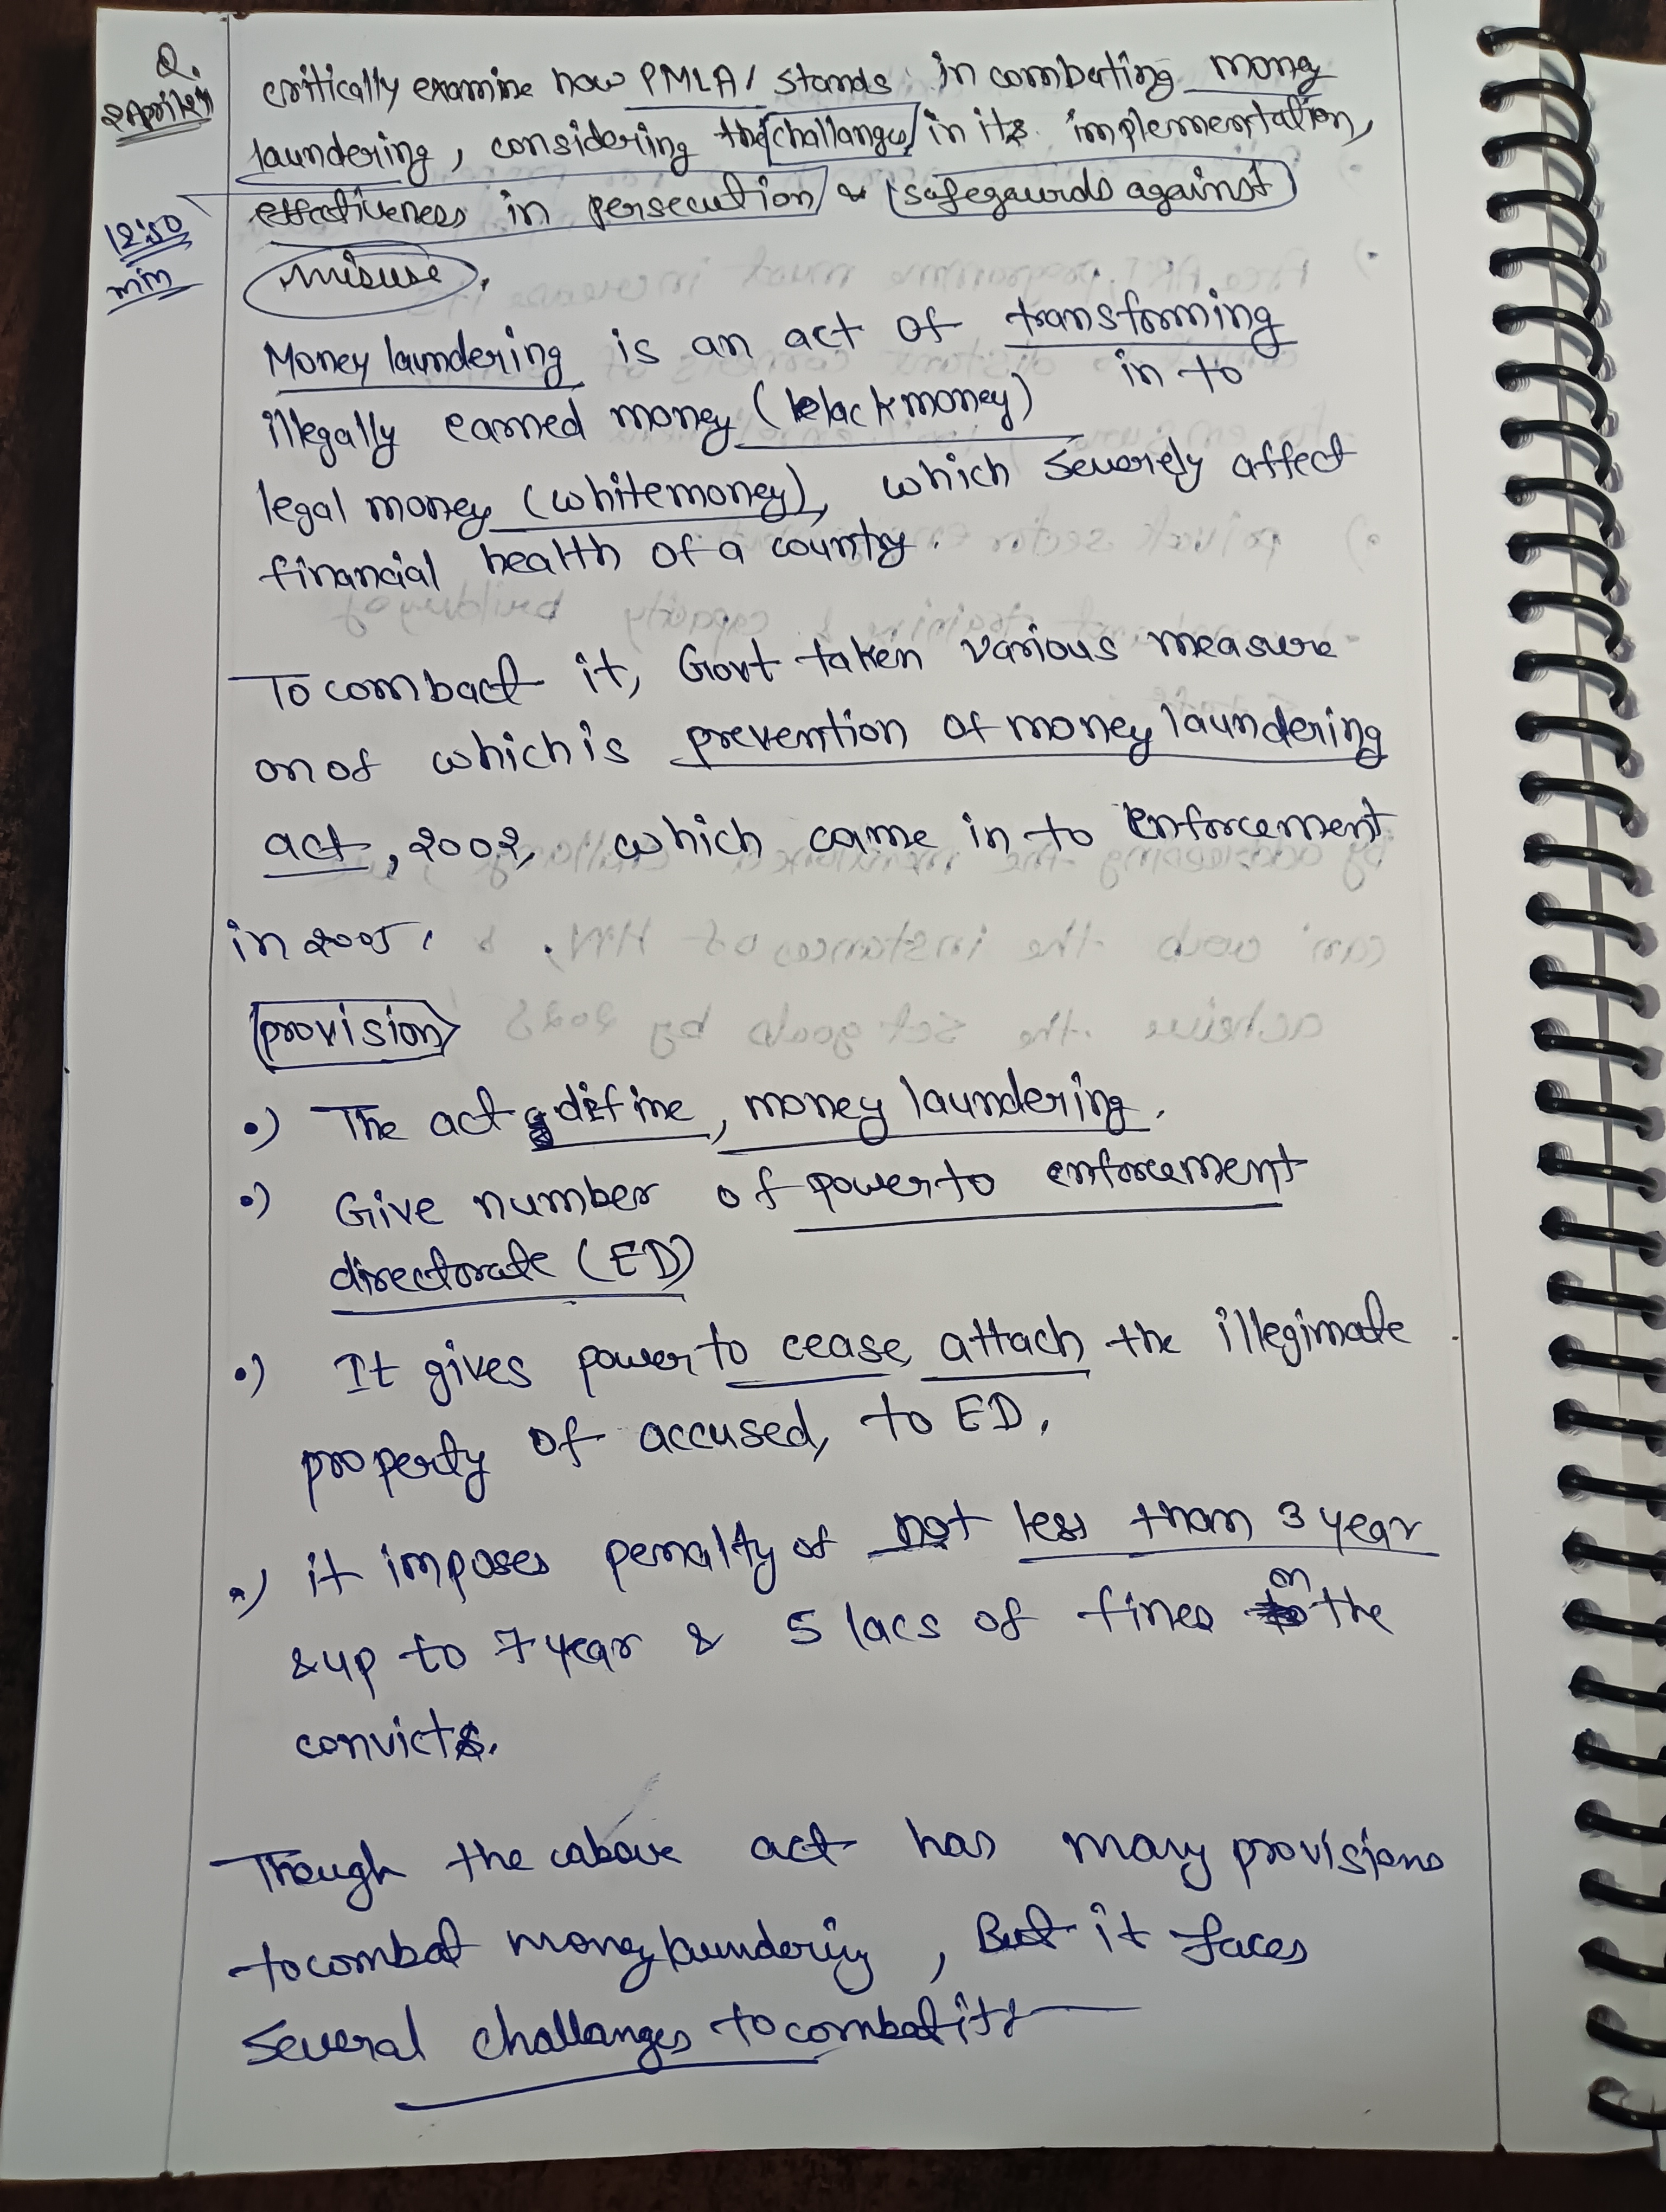 Q.
2 April 24
critically examine how PMLA, stands in combating mony
laundering, considering the challanges in its implementation,
effectiveness in persecution & safegaurds against
12:50
min
misuse.
Money laundering is an act of transforming
illegally earned money (black money) in to
legal money (white money), which severely affect
financial health of a country.
To combact it, Govt taken various measure
on of which is prevention of money laundering
act, 2002, which came in to enforcement
in 2005.
provision
•) The act define, money laundering.
•) Give number of power to enforcement
directorate (ED)
•) It gives power to cease, attach the illegimate
property of accused, to ED.
•) it imposes penalty of not less than 3 year
& up to 7 year & 5 lacs of fines on the
convicts.
Though the above act has many provisions
to combat money laundering, But it faces
several challanges to combat it